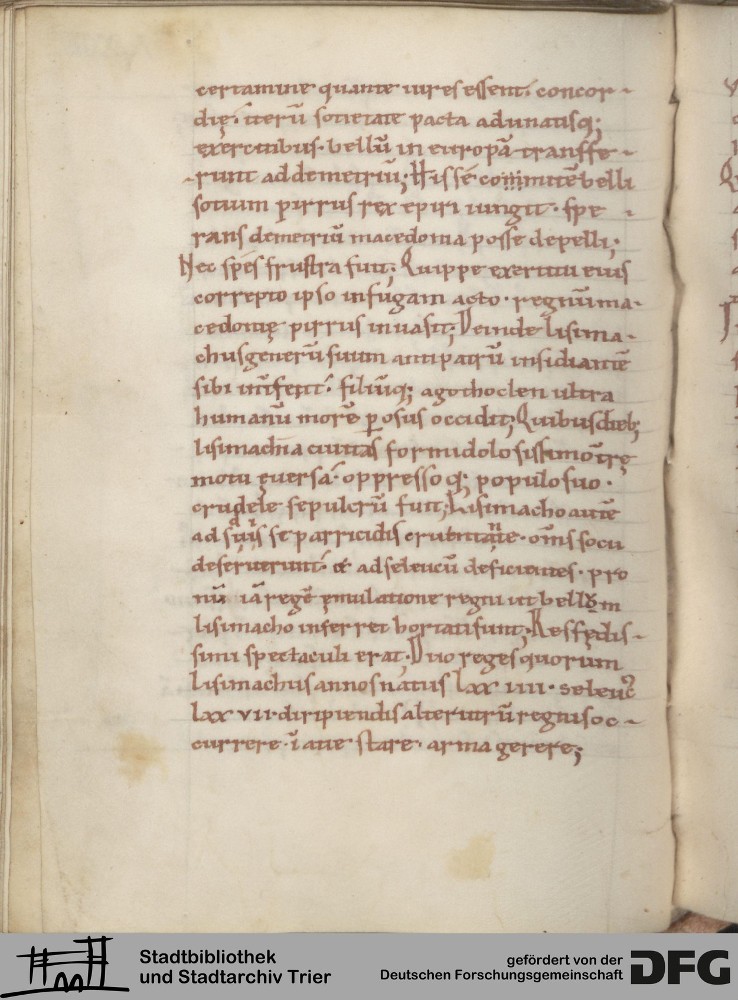 certamine quante uires essent. concor-
dię. iterū sotietate pacta adunatisq;
exercitibus. bellū in europā transffe-
runt ad demetriū; His se cōmittē belli
sotium pirrus rex epiri iungit. spe
rans demetriū macedonia posse depelli;
Nec spes frustra fuit; Quippe exercitu eius
correpto ipso in fugam acto. regnū ma-
cedonię pirrus inuasit; Deinde lisima-
chus generū suum antipatrū insidiantē
sibi filiūq; agothoclen ultra
humanū morē ꝑosus occidit; Quibus dieb;
lisimachia ciuitas formidolosissimo tr̄ę
motu euersa. oppresso q; populo suo.
crudele sepulcrū fuit; Lisimacho autē
ad se parricidiis om̄s socii
deseruerunt. et ad seleucū deficientes. pro
nū iā regē emulatione regni ut bellum
lisimacho inferret hortati sunt; Res fędis-
simi spectaculi erat; Duo reges quorum
lisimachus annos natus lxx iiii. seleuc᾽
lxx vii. diripiendis alterutrū regnis oc-
currere. ī atie stare. arma gerere;
Stadtbibliothek
und Stadtarchiv Trier
gefördert von der
Deutschen Forschungsgemeinschaft
DFG